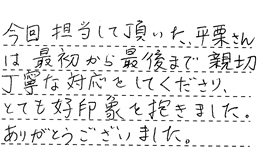 今回担当して頂いた、平栗さん
は最初から最後まで親切
丁寧な対応をしてくださり、
とても好印象を抱きました。
ありがとうございました。